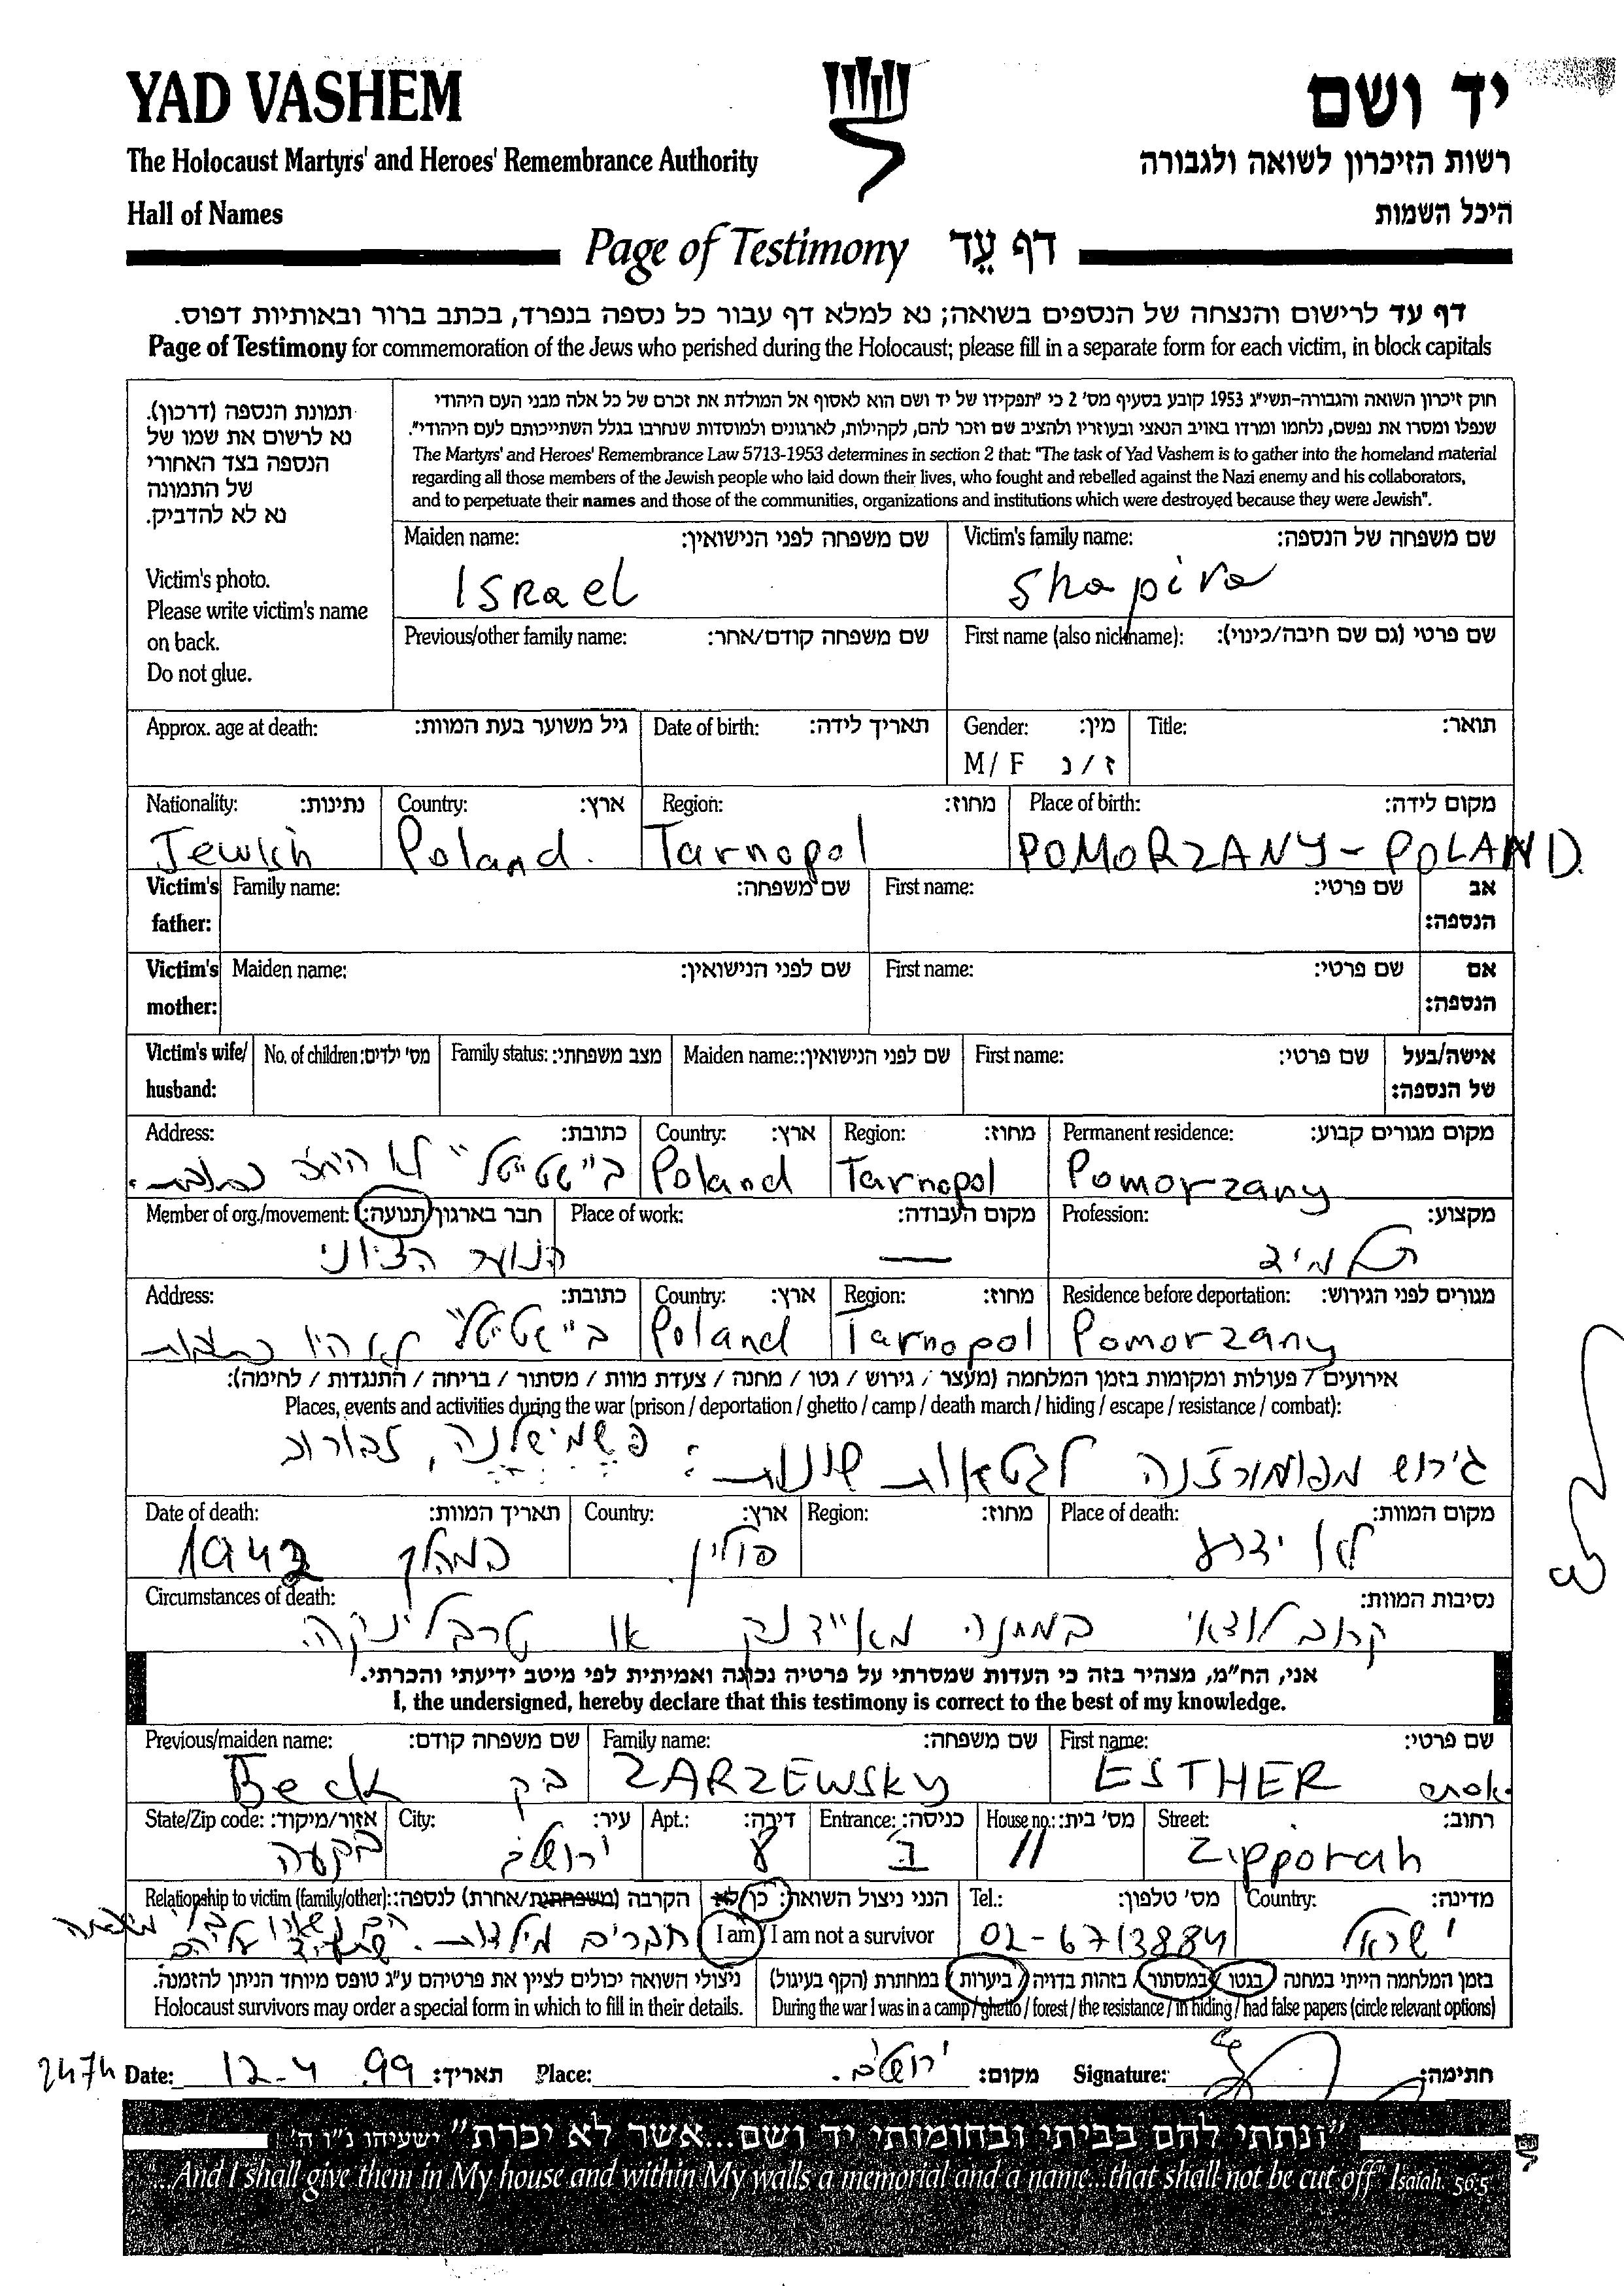 YAD VASHEM
יד ושם
The Holocaust Martyrs' and Heroes' Remembrance Authority
רשות הזיכרון לשואה ולגבורה
Hall of Names
היכל השמות
Page of Testimony דף עֵד
דף עד לרישום והנצחה של הנספים בשואה; נא למלא דף עבור כל נספה בנפרד, בכתב ברור ובאותיות דפוס.
Page of Testimony for commemoration of the Jews who perished during the Holocaust; please fill in a separate form for each victim, in block capitals
תמונת הנספה (דרכון).
נא לרשום את שמו של
הנספה בצד האחורי
של התמונה
נא לא להדביק.
Victim's photo.
Please write victim's name
on back.
Do not glue.
חוק זיכרון השואה והגבורה-תשי"ג 1953 קובע בסעיף מס' 2 כי "תפקידו של יד ושם הוא לאסוף אל המולדת את זכרם של כל אלה מבני העם היהודי
שנפלו ומסרו את נפשם, נלחמו ומרדו באויב הנאצי ובעוזריו ולהציב שם וזכר להם, לקהילות, לארגונים ולמוסדות שנחרבו בגלל השתייכותם לעם היהודי".
The Martyrs' and Heroes' Remembrance Law 5713-1953 determines in section 2 that: "The task of Yad Vashem is to gather into the homeland material
regarding all those members of the Jewish people who laid down their lives, who fought and rebelled against the Nazi enemy and his collaborators,
and to perpetuate their names and those of the communities, organizations and institutions which were destroyed because they were Jewish".
Maiden name: שם משפחה לפני הנישואין: Victim's family name: שם משפחה של הנספה:
Israel Shapira
Previous/other family name: שם משפחה קודם/אחר: First name (also nickname): שם פרטי (גם שם חיבה/כינוי):
Approx. age at death: גיל משוער בעת המוות: Date of birth: תאריך לידה: Gender: מין: Title: תואר:
M / F ז / נ
Nationality: נתינות: Country: ארץ: Region: מחוז: Place of birth: מקום לידה:
Jewish Poland. Tarnopol POMORZANY - POLAND.
Victim's father: Family name: שם משפחה: First name: שם פרטי: אב הנספה:
Victim's mother: Maiden name: שם לפני הנישואין: First name: שם פרטי: אם הנספה:
Victim's wife/ husband: No. of children: מס' ילדים: Family status: מצב משפחתי: Maiden name: שם לפני הנישואין: First name: שם פרטי: אישה/בעל של הנספה:
Address: כתובת: Country: ארץ: Region: מחוז: Permanent residence: מקום מגורים קבוע:
ב"שטיטל" לא היו כתובות. Poland Tarnopol Pomorzany
Member of org./movement: חבר בארגון/תנועה: Place of work: מקום העבודה: Profession: מקצוע:
הנוער הציוני — תלמיד
Address: כתובת: Country: ארץ: Region: מחוז: Residence before deportation: מגורים לפני הגירוש:
ב"שטיטל" לא היו כתובות Poland Tarnopol Pomorzany
אירועים / פעולות ומקומות בזמן המלחמה (מעצר / גירוש / גטו / מחנה / צעדת מוות / מסתור / בריחה / התנגדות / לחימה):
Places, events and activities during the war (prison / deportation / ghetto / camp / death march / hiding / escape / resistance / combat):
גירוש מפומורזנה לגטאות שונות: פשמישלנה, זבורוב
Date of death: תאריך המוות: Country: ארץ: Region: מחוז: Place of death: מקום המוות:
1942 במהלך פולין לא ידוע
Circumstances of death: נסיבות המוות:
קרוב לודאי במחנה מאיידנק או טרבלינקה.
אני, הח"מ, מצהיר בזה כי העדות שמסרתי על פרטיה נכונה ואמיתית לפי מיטב ידיעתי והכרתי.
I, the undersigned, hereby declare that this testimony is correct to the best of my knowledge.
Previous/maiden name: שם משפחה קודם: Family name: שם משפחה: First name: שם פרטי:
Beck בק ZARZEWSKY ESTHER אסתר
State/Zip code: אזור/מיקוד: City: עיר: Apt.: דירה: Entrance: כניסה: House no.: מס' בית: Street: רחוב:
בקעה ירושלים 8 ב 11 Zipporah
Relationship to victim (family/other): הקרבה (משפחתית/אחרת) לנספה: הנני ניצול השואה: כן / לא Tel.: מס' טלפון: Country: מדינה:
חברים מילדות. הם נשארו בלי משפחה שתעיד עליהם I am / I am not a survivor 02-6713884 ישראל
ניצולי השואה יכולים לציין את פרטיהם ע"ג טופס מיוחד הניתן להזמנה. בזמן המלחמה הייתי במחנה / בגטו / במסתור / בזהות בדויה / ביערות / במחתרת (הקף בעיגול)
Holocaust survivors may order a special form in which to fill in their details. During the war I was in a camp / ghetto / forest / the resistance / in hiding / had false papers (circle relevant options)
2474 Date: 12-4 99 תאריך: Place: ירושלים. מקום: Signature: חתימה:
"ונתתי להם בביתי ובחומותי יד ושם...אשר לא יכרת" ישעיהו נ"ו ה'
...And I shall give them in My house and within My walls a memorial and a name...that shall not be cut off" Isaiah 56:5